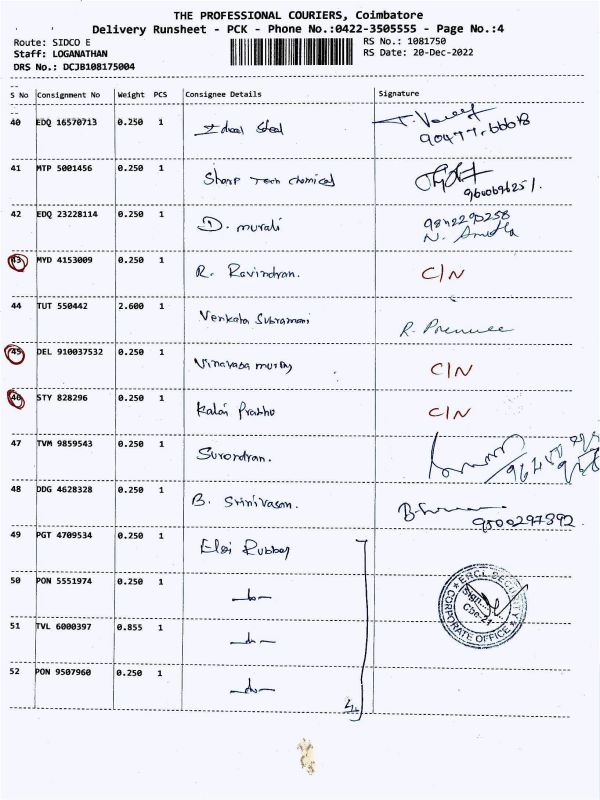 THE PROFESSIONAL COURIERS, Coimbatore
Delivery Runsheet - PCK - Phone No.:0422-3505555 - Page No.:4
Route: SIDCO E
RS No.: 1081750
Staff: LOGANATHAN
RS Date: 20-Dec-2022
DRS No.: DCJB108175004
S No Consignment No Weight PCS Consignee Details Signature
40 EDQ 16570713 0.250 1 Ideal Steel
41 MTP 5001456 0.250 1 Sharp Tech Chemical
9600696251.
42 EDQ 23228114 0.250 1 D. murali 9842290258
43 MYD 4153009 0.250 1 R. Ravindran. C/N
44 TUT 550442 2.600 1 Venkata Subramani
45 DEL 910037532 0.250 1 C/N
46 STY 828296 0.250 1 Kalai Prabho C/N
47 TVM 9859543 0.250 1
48 DDG 4628328 0.250 1 B. Srinivasan.
9500297392.
49 PGT 4709534 0.250 1 Elgi Rubber
50 PON 5551974 0.250 1 -do-
51 TVL 6000397 0.855 1 -do-
52 PON 9507960 0.250 1 -do-
ERCL SECURITY
Sign...
Cbe-21
CORPORATE OFFICE